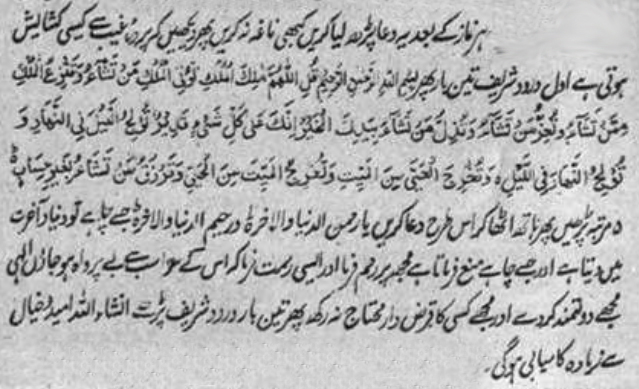 ہر نماز کے بعد یہ دعا پڑھ لیا کریں کبھی ناغہ نہ کریں پھر دیکھیں کہ پردہ غیب سے کیسی کشائش
ہوتی ہے اول درود شریف تین بار پھر بسم اللہ الرحمن الرحیم قُلِ اللّٰهُمَّ مٰلِكَ الْمُلْكِ تُؤْتِی الْمُلْكَ مَنْ تَشَآءُ وَتَنْزِعُ الْمُلْكَ
مِمَّنْ تَشَآءُ وَتُعِزُّ مَنْ تَشَآءُ وَتُذِلُّ مَنْ تَشَآءُ بِیَدِكَ الْخَیْرُ اِنَّكَ عَلٰی كُلِّ شَیْءٍ قَدِیْرٌ تُوْلِجُ الَّیْلَ فِی النَّهَارِ وَ
تُوْلِجُ النَّهَارَ فِی اللَّیْلِ وَتُخْرِجُ الْحَیَّ مِنَ الْمَیِّتِ وَتُخْرِجُ الْمَیِّتَ مِنَ الْحَیِّ وَتَرْزُقُ مَنْ تَشَآءُ بِغَیْرِ حِسَابٍ
۵ مرتبہ پڑھیں پھر ہاتھ اٹھا کر اس طرح دعا کریں یا رحمن الدنیا والاخرۃ و رحیم الدنیا والاخرۃ جسے چاہے تو دنیا و آخرت
میں دیتا ہے اور جسے چاہے منع فرماتا ہے مجھ پر رحم فرما اور ایسی رحمت فرما کہ اس کے سوا سب سے بے پرواہ ہو جاؤں الٰہی
مجھے دولتمند کر دے اور مجھے کسی کا قرض دار محتاج نہ رکھ پھر تین بار درود شریف پڑے انشاء اللہ امید و خیال
سے زیادہ کامیابی ہوگی۔